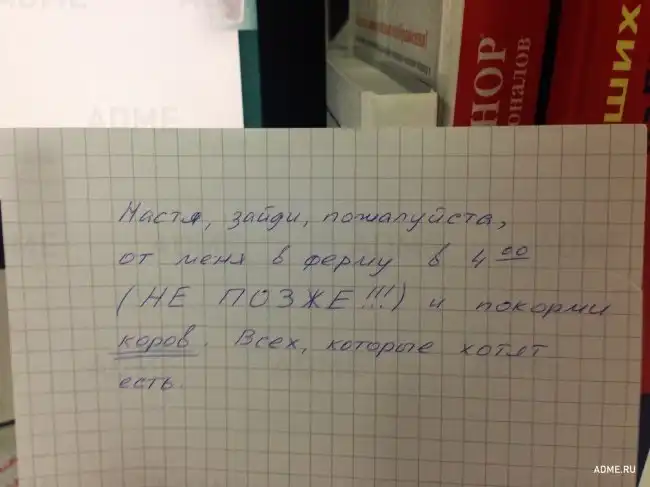 ADME
ADME
ADME
НОР
ОНАЛОВ
ХИШ
Настя, зайди, пожалуйста,
от меня в ферму в 4 00
(НЕ ПОЗЖЕ!!!) и покорми
коров. Всех, которые хотят
есть.
ADME.RU